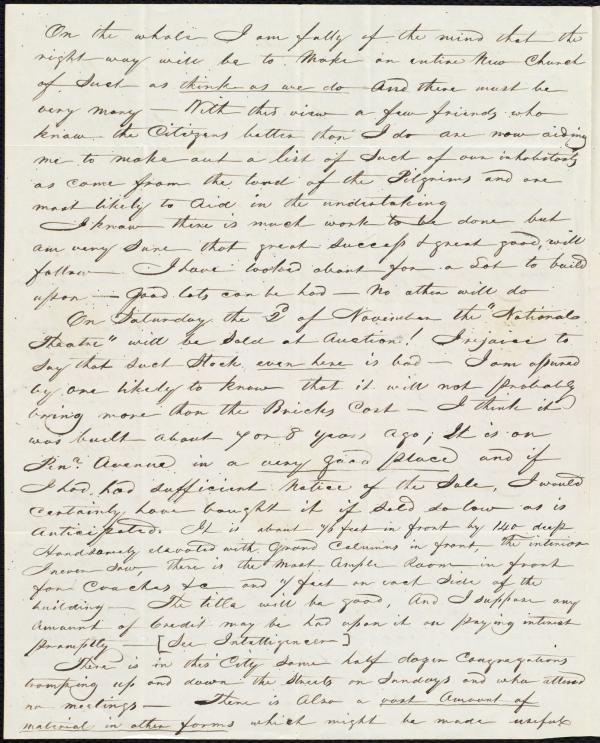 On the whole I am fully of the mind that the
right way will be to make an entire New Church
of such as think as we do and there must be
very many — With this view a few friends who
know the Citizens better than I do are now aiding
me to make out a list of such of our inhabitants
as came from the land of the Pilgrims and are
most likely to aid in the undertaking
I know there is much work to be done but
am very sure that great success & great good, will
follow — I have looked about for a Lot to build
upon — Good lots can be had — No other will do
On Saturday the 2d of November the "National
Theatre" will be sold at Auction! I rejoice to
say that such Stock even here is bad — I am assured
by one likely to know that it will not probably
bring more than the Bricks Cost — I think it
was built about 7 or 8 years ago; It is on
Penn. Avenue in a very good place and if
I had had sufficient Notice of the Sale, I would
certainly have bought it if sold so low as is
anticipated. It is about feet in front by 140 deep
Handsomely elevated with Grand Columns in front, the interior
I never saw, there is the most Ample Room in front
for Coaches &c and 7 feet on each side of the
building — The title will be good, And I suppose any
amount of Credit may be had upon it on paying interest
promptly — [See Intelligencer]
There is in this City some half dozen Congregations
tromping up and down the streets on Sundays and who attend
no meetings — There is also a vast Amount of
material in other forms which might be made useful